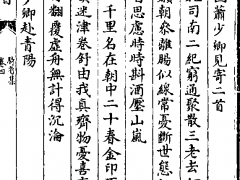 蕭少卿見寄二首
司南二紀窮通聚散三老去
朝參離腸似線常憂斷世態
思慮時時斟酒壓山嵐
千里名在朝中二十春金印
迷津卷舒由我真齊物憂喜
翻覆虛舟無計得沉淪
少卿赴青陽
騎省集
卷四